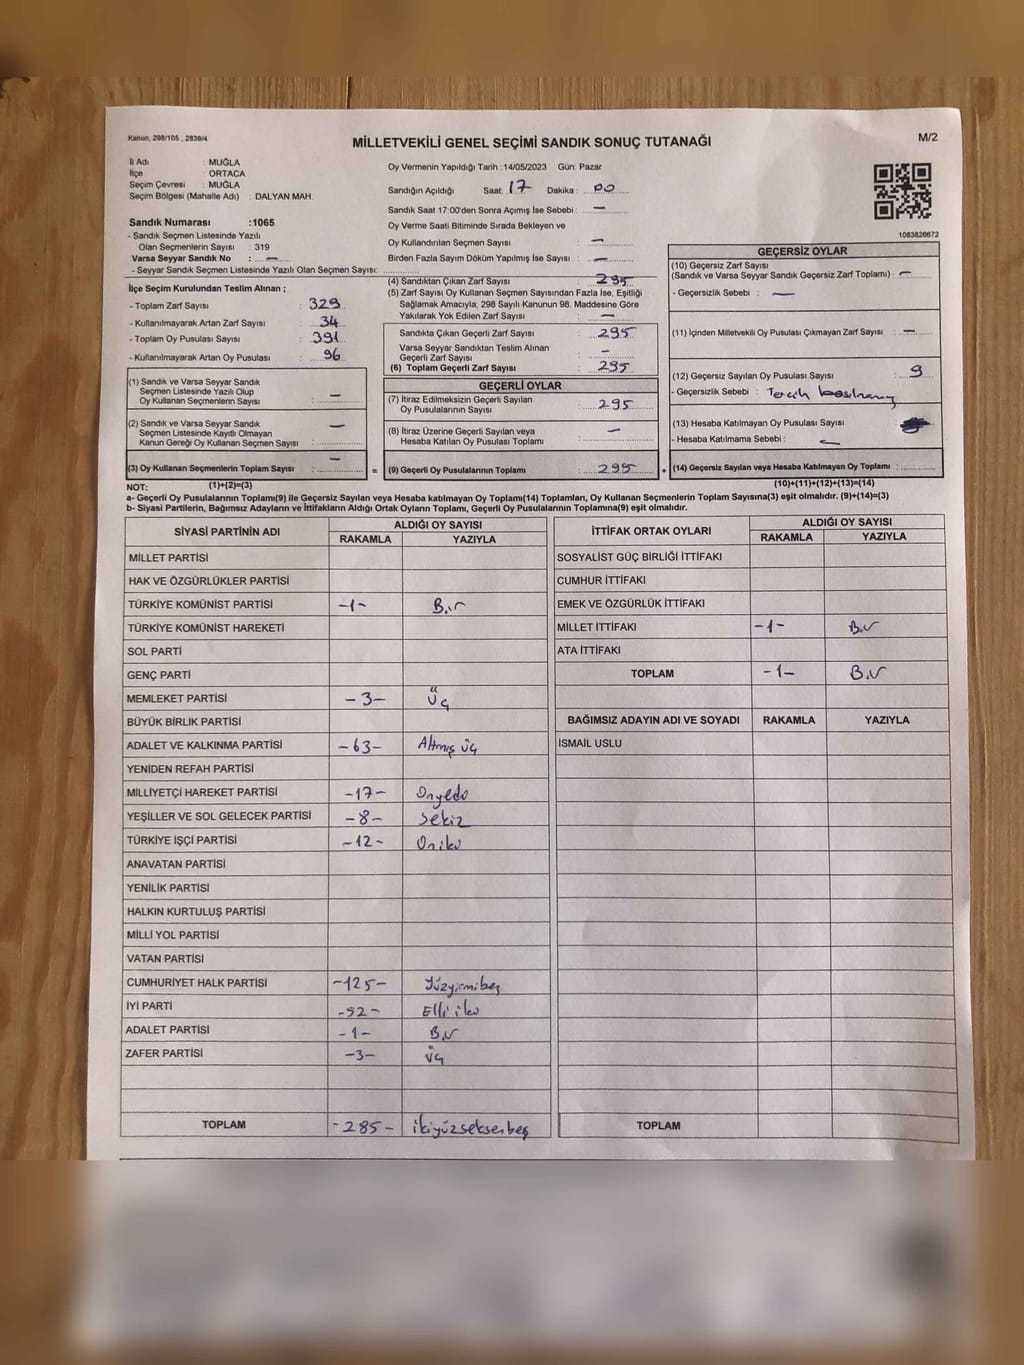 Kanun, 298/105 , 2839/4
MİLLETVEKİLİ GENEL SEÇİMİ SANDIK SONUÇ TUTANAĞI
M/2
İl Adı : MUĞLA
İlçe : ORTACA
Seçim Çevresi : MUĞLA
Seçim Bölgesi (Mahalle Adı) : DALYAN MAH.
Sandık Numarası :1065
- Sandık Seçmen Listesinde Yazılı
Olan Seçmenlerin Sayısı : 319
Varsa Seyyar Sandık No : —
- Seyyar Sandık Seçmen Listesinde Yazılı Olan Seçmen Sayısı:
İlçe Seçim Kurulundan Teslim Alınan ;
- Toplam Zarf Sayısı : 329
- Kullanılmayarak Artan Zarf Sayısı : 34
- Toplam Oy Pusulası Sayısı : 391
- Kullanılmayarak Artan Oy Pusulası : 96
(1) Sandık ve Varsa Seyyar Sandık
Seçmen Listesinde Yazılı Olup
Oy Kullanan Seçmenlerin Sayısı : —
(2) Sandık ve Varsa Seyyar Sandık
Seçmen Listesinde Kayıtlı Olmayan
Kanun Gereği Oy Kullanan Seçmen Sayısı : —
(3) Oy Kullanan Seçmenlerin Toplam Sayısı : —
Oy Vermenin Yapıldığı Tarih : 14/05/2023 Gün: Pazar
Sandığın Açıldığı Saat: 17 Dakika : 00
Sandık Saat 17:00'den Sonra Açımış İse Sebebi : —
Oy Verme Saati Bitiminde Sırada Bekleyen ve
Oy Kullandırılan Seçmen Sayısı : —
Birden Fazla Sayım Döküm Yapılmış İse Sayısı : —
(4) Sandıktan Çıkan Zarf Sayısı : 295
(5) Zarf Sayısı Oy Kullanan Seçmen Sayısından Fazla İse, Eşitliği
Sağlamak Amacıyla; 298 Sayılı Kanunun 98. Maddesine Göre
Yakılarak Yok Edilen Zarf Sayısı : —
Sandıkta Çıkan Geçerli Zarf Sayısı : 295
Varsa Seyyar Sandıktan Teslim Alınan
Geçerli Zarf Sayısı : —
(6) Toplam Geçerli Zarf Sayısı : 295
GEÇERLİ OYLAR
(7) İtiraz Edilmeksizin Geçerli Sayılan
Oy Pusulalarının Sayısı : 295
(8) İtiraz Üzerine Geçerli Sayılan veya
Hesaba Katılan Oy Pusulası Toplamı : —
= (9) Geçerli Oy Pusulalarının Toplamı : 295 +
1083826672
GEÇERSİZ OYLAR
(10) Geçersiz Zarf Sayısı
(Sandık ve Varsa Seyyar Sandık Geçersiz Zarf Toplamı) : —
- Geçersizlik Sebebi : —
(11) İçinden Milletvekili Oy Pusulası Çıkmayan Zarf Sayısı : —
(12) Geçersiz Sayılan Oy Pusulası Sayısı : 9
- Geçersizlik Sebebi : Tercih
(13) Hesaba Katılmayan Oy Pusulası Sayısı :
- Hesaba Katılmama Sebebi : —
(14) Geçersiz Sayılan veya Hesaba Katılmayan Oy Toplamı :
NOT: (1)+(2)=(3) (10)+(11)+(12)+(13)=(14)
a- Geçerli Oy Pusulalarının Toplamı(9) ile Geçersiz Sayılan veya Hesaba katılmayan Oy Toplamı(14) Toplamları, Oy Kullanan Seçmenlerin Toplam Sayısına(3) eşit olmalıdır. (9)+(14)=(3)
b- Siyasi Partilerin, Bağımsız Adayların ve İttifakların Aldığı Ortak Oyların Toplamı, Geçerli Oy Pusulalarının Toplamına(9) eşit olmalıdır.
SİYASİ PARTİNİN ADI ALDIĞI OY SAYISI
RAKAMLA YAZIYLA
MİLLET PARTİSİ
HAK VE ÖZGÜRLÜKLER PARTİSİ
TÜRKİYE KOMÜNİST PARTİSİ -1- Bir
TÜRKİYE KOMÜNİST HAREKETİ
SOL PARTİ
GENÇ PARTİ
MEMLEKET PARTİSİ -3- Üç
BÜYÜK BİRLİK PARTİSİ
ADALET VE KALKINMA PARTİSİ -63- Altmış üç
YENİDEN REFAH PARTİSİ
MİLLİYETÇİ HAREKET PARTİSİ -17- Onyedi
YEŞİLLER VE SOL GELECEK PARTİSİ -8- Sekiz
TÜRKİYE İŞÇİ PARTİSİ -12- Oniki
ANAVATAN PARTİSİ
YENİLİK PARTİSİ
HALKIN KURTULUŞ PARTİSİ
MİLLİ YOL PARTİSİ
VATAN PARTİSİ
CUMHURİYET HALK PARTİSİ -125- Yüzyirmibeş
İYİ PARTİ -52- Elli iki
ADALET PARTİSİ -1- Bir
ZAFER PARTİSİ -3- Üç
TOPLAM -285- ikiyüzseksenbeş
İTTİFAK ORTAK OYLARI ALDIĞI OY SAYISI
RAKAMLA YAZIYLA
SOSYALİST GÜÇ BİRLİĞİ İTTİFAKI
CUMHUR İTTİFAKI
EMEK VE ÖZGÜRLÜK İTTİFAKI
MİLLET İTTİFAKI -1- Bir
ATA İTTİFAKI
TOPLAM -1- Bir
BAĞIMSIZ ADAYIN ADI VE SOYADI RAKAMLA YAZIYLA
İSMAİL USLU
TOPLAM